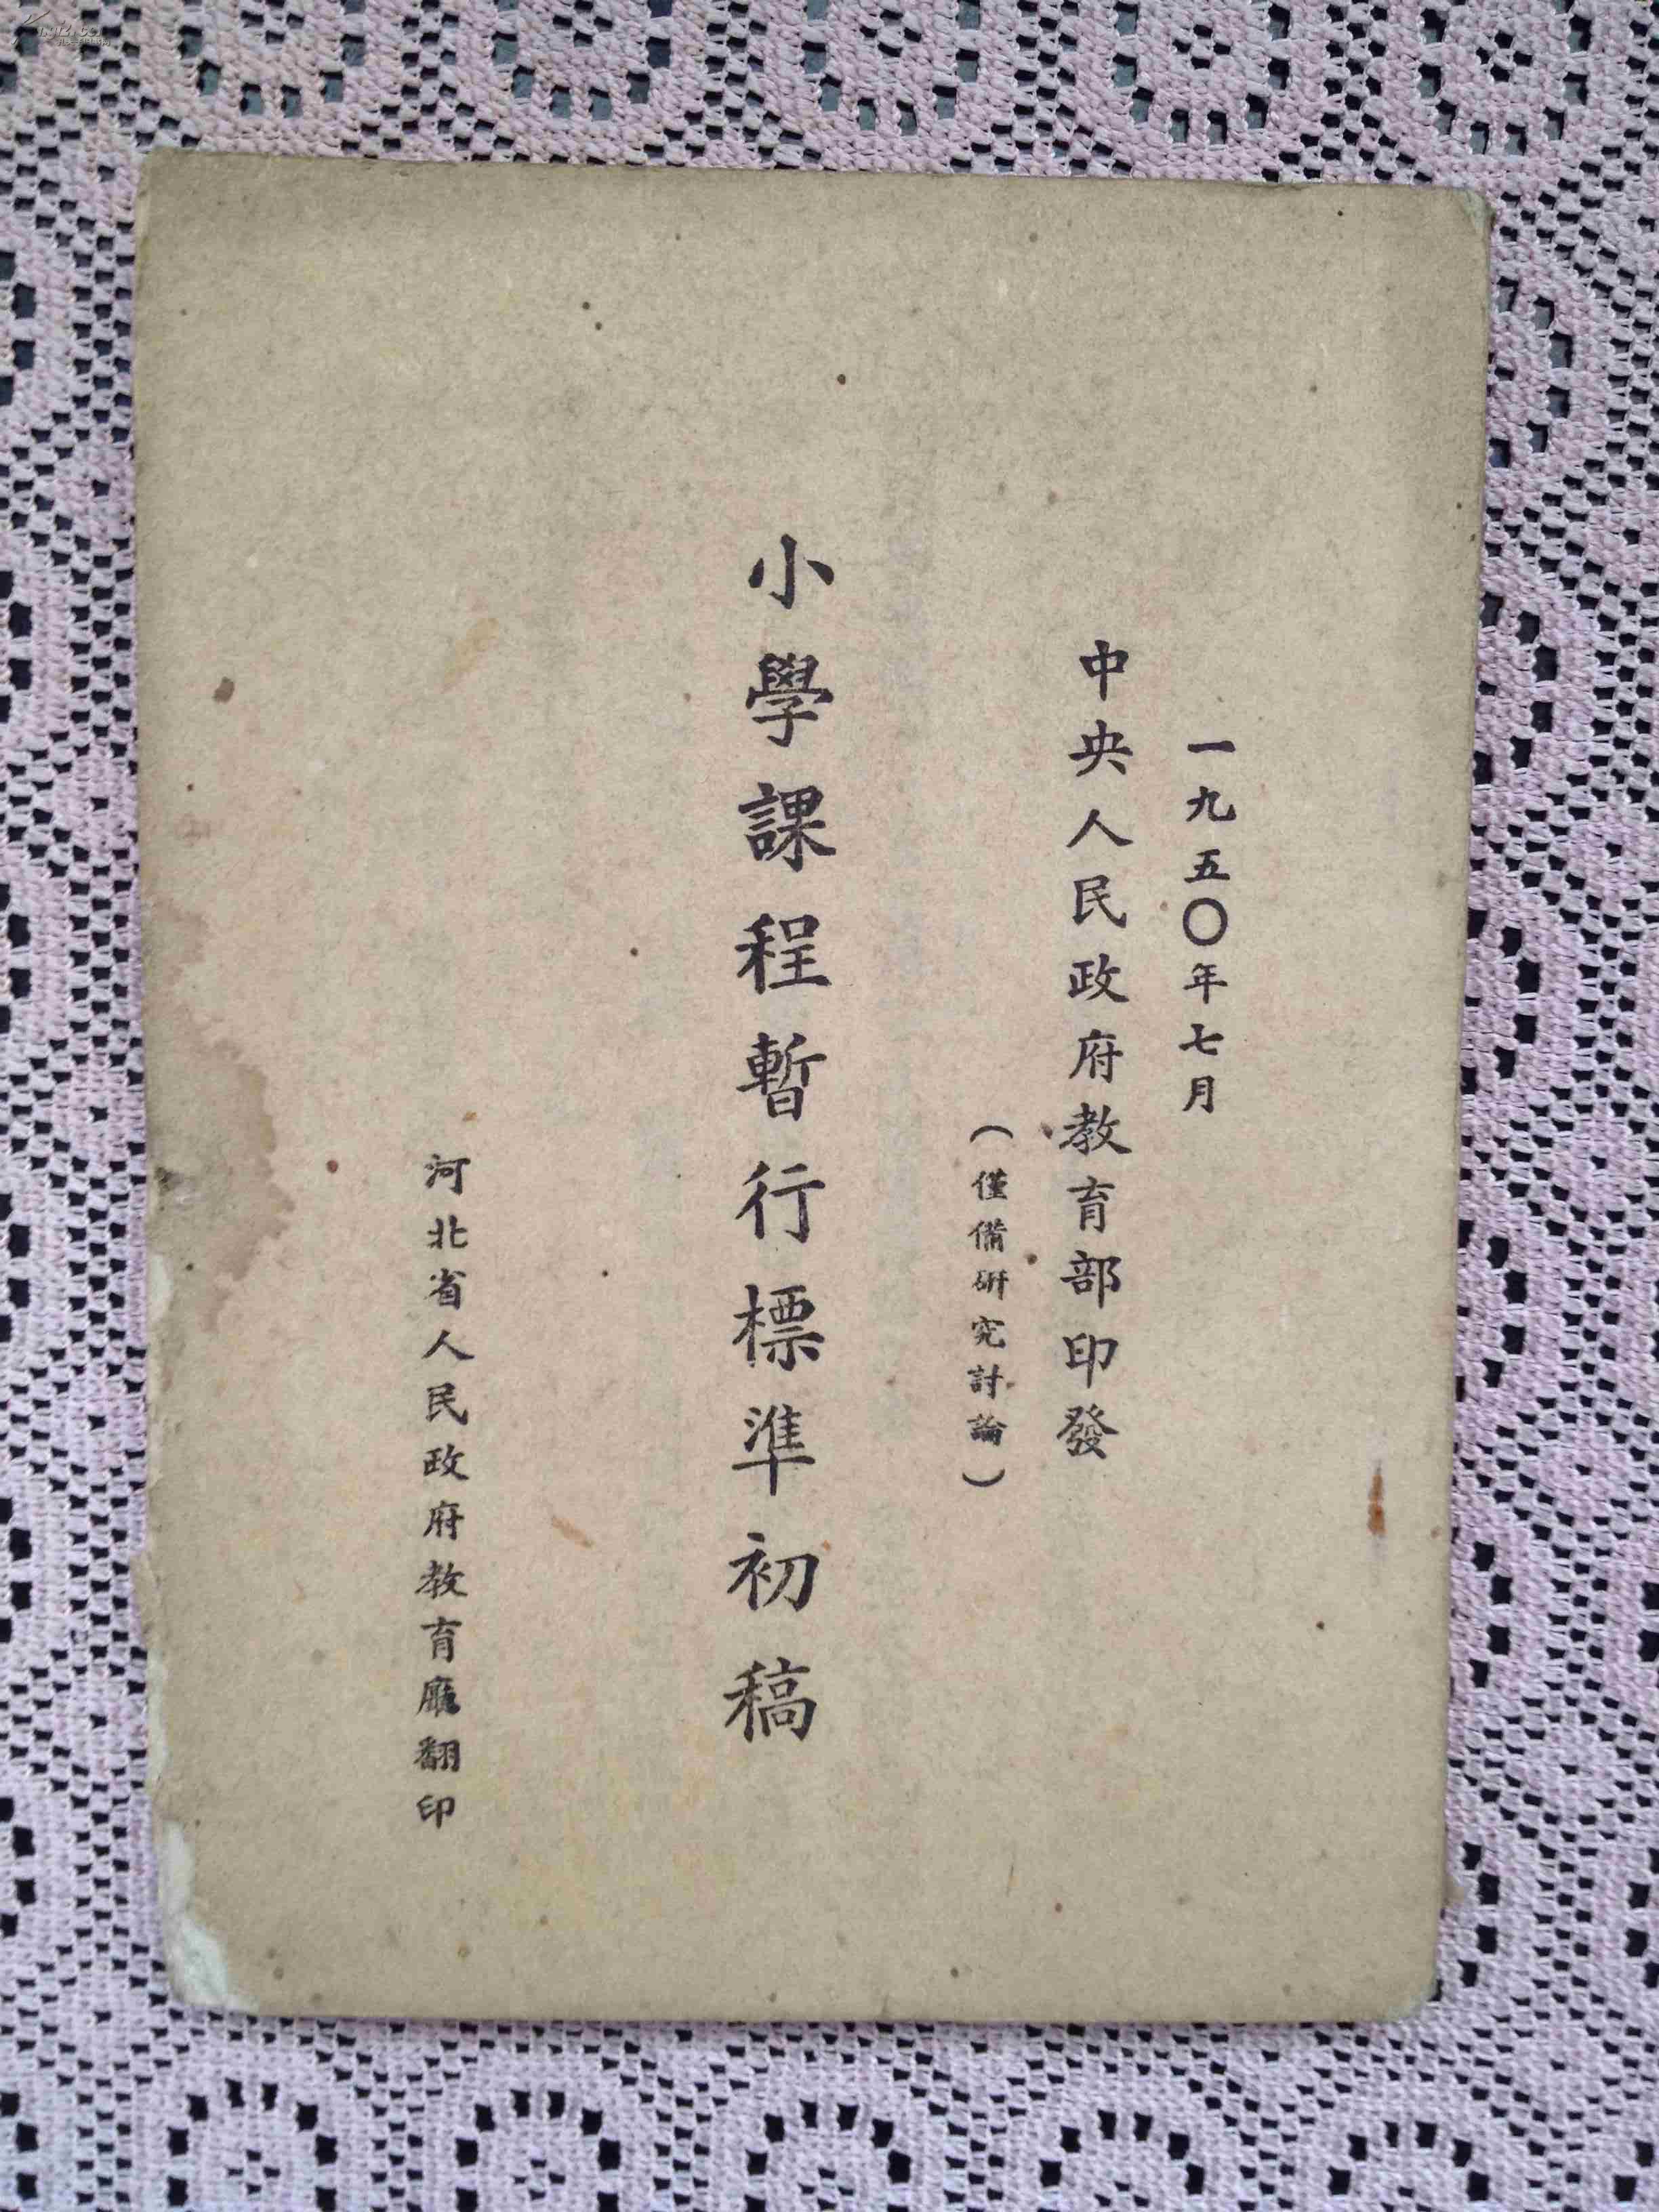 一九五〇年七月
中央人民政府教育部印發
(僅備研究討論)
小學課程暫行標準初稿
河北省人民政府教育廳翻印